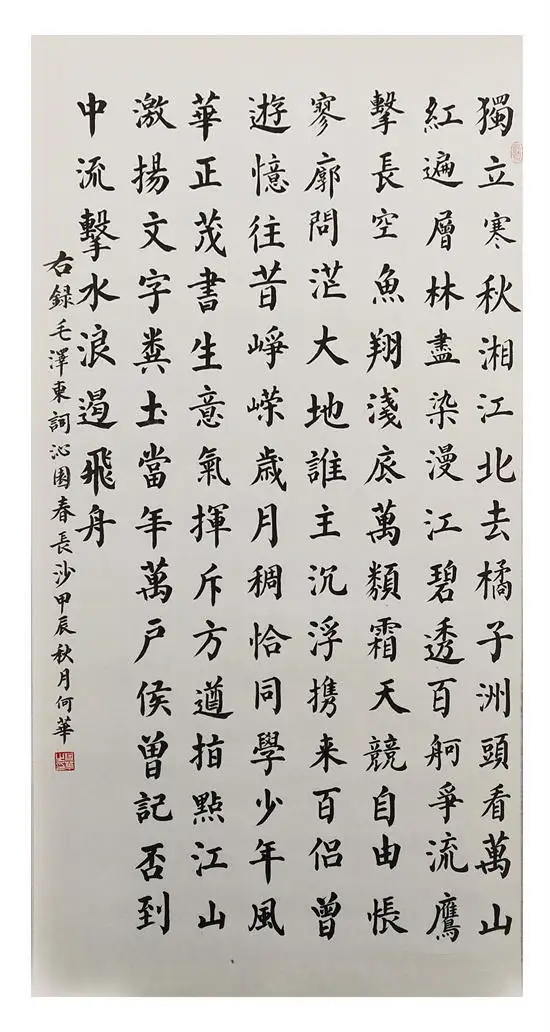 獨立寒秋湘江北去橘子洲頭看萬山
紅遍層林盡染漫江碧透百舸爭流鷹
擊長空魚翔淺底萬類霜天競自由悵
寥廓問茫大地誰主沉浮携来百侣曾
遊憶往昔崢嶸歲月稠恰同學少年風
華正茂書生意氣揮斥方遒指點江山
激揚文字糞土當年萬户侯曾記否到
中流擊水浪遏飛舟
右録毛澤東詞沁園春長沙甲辰秋月何華